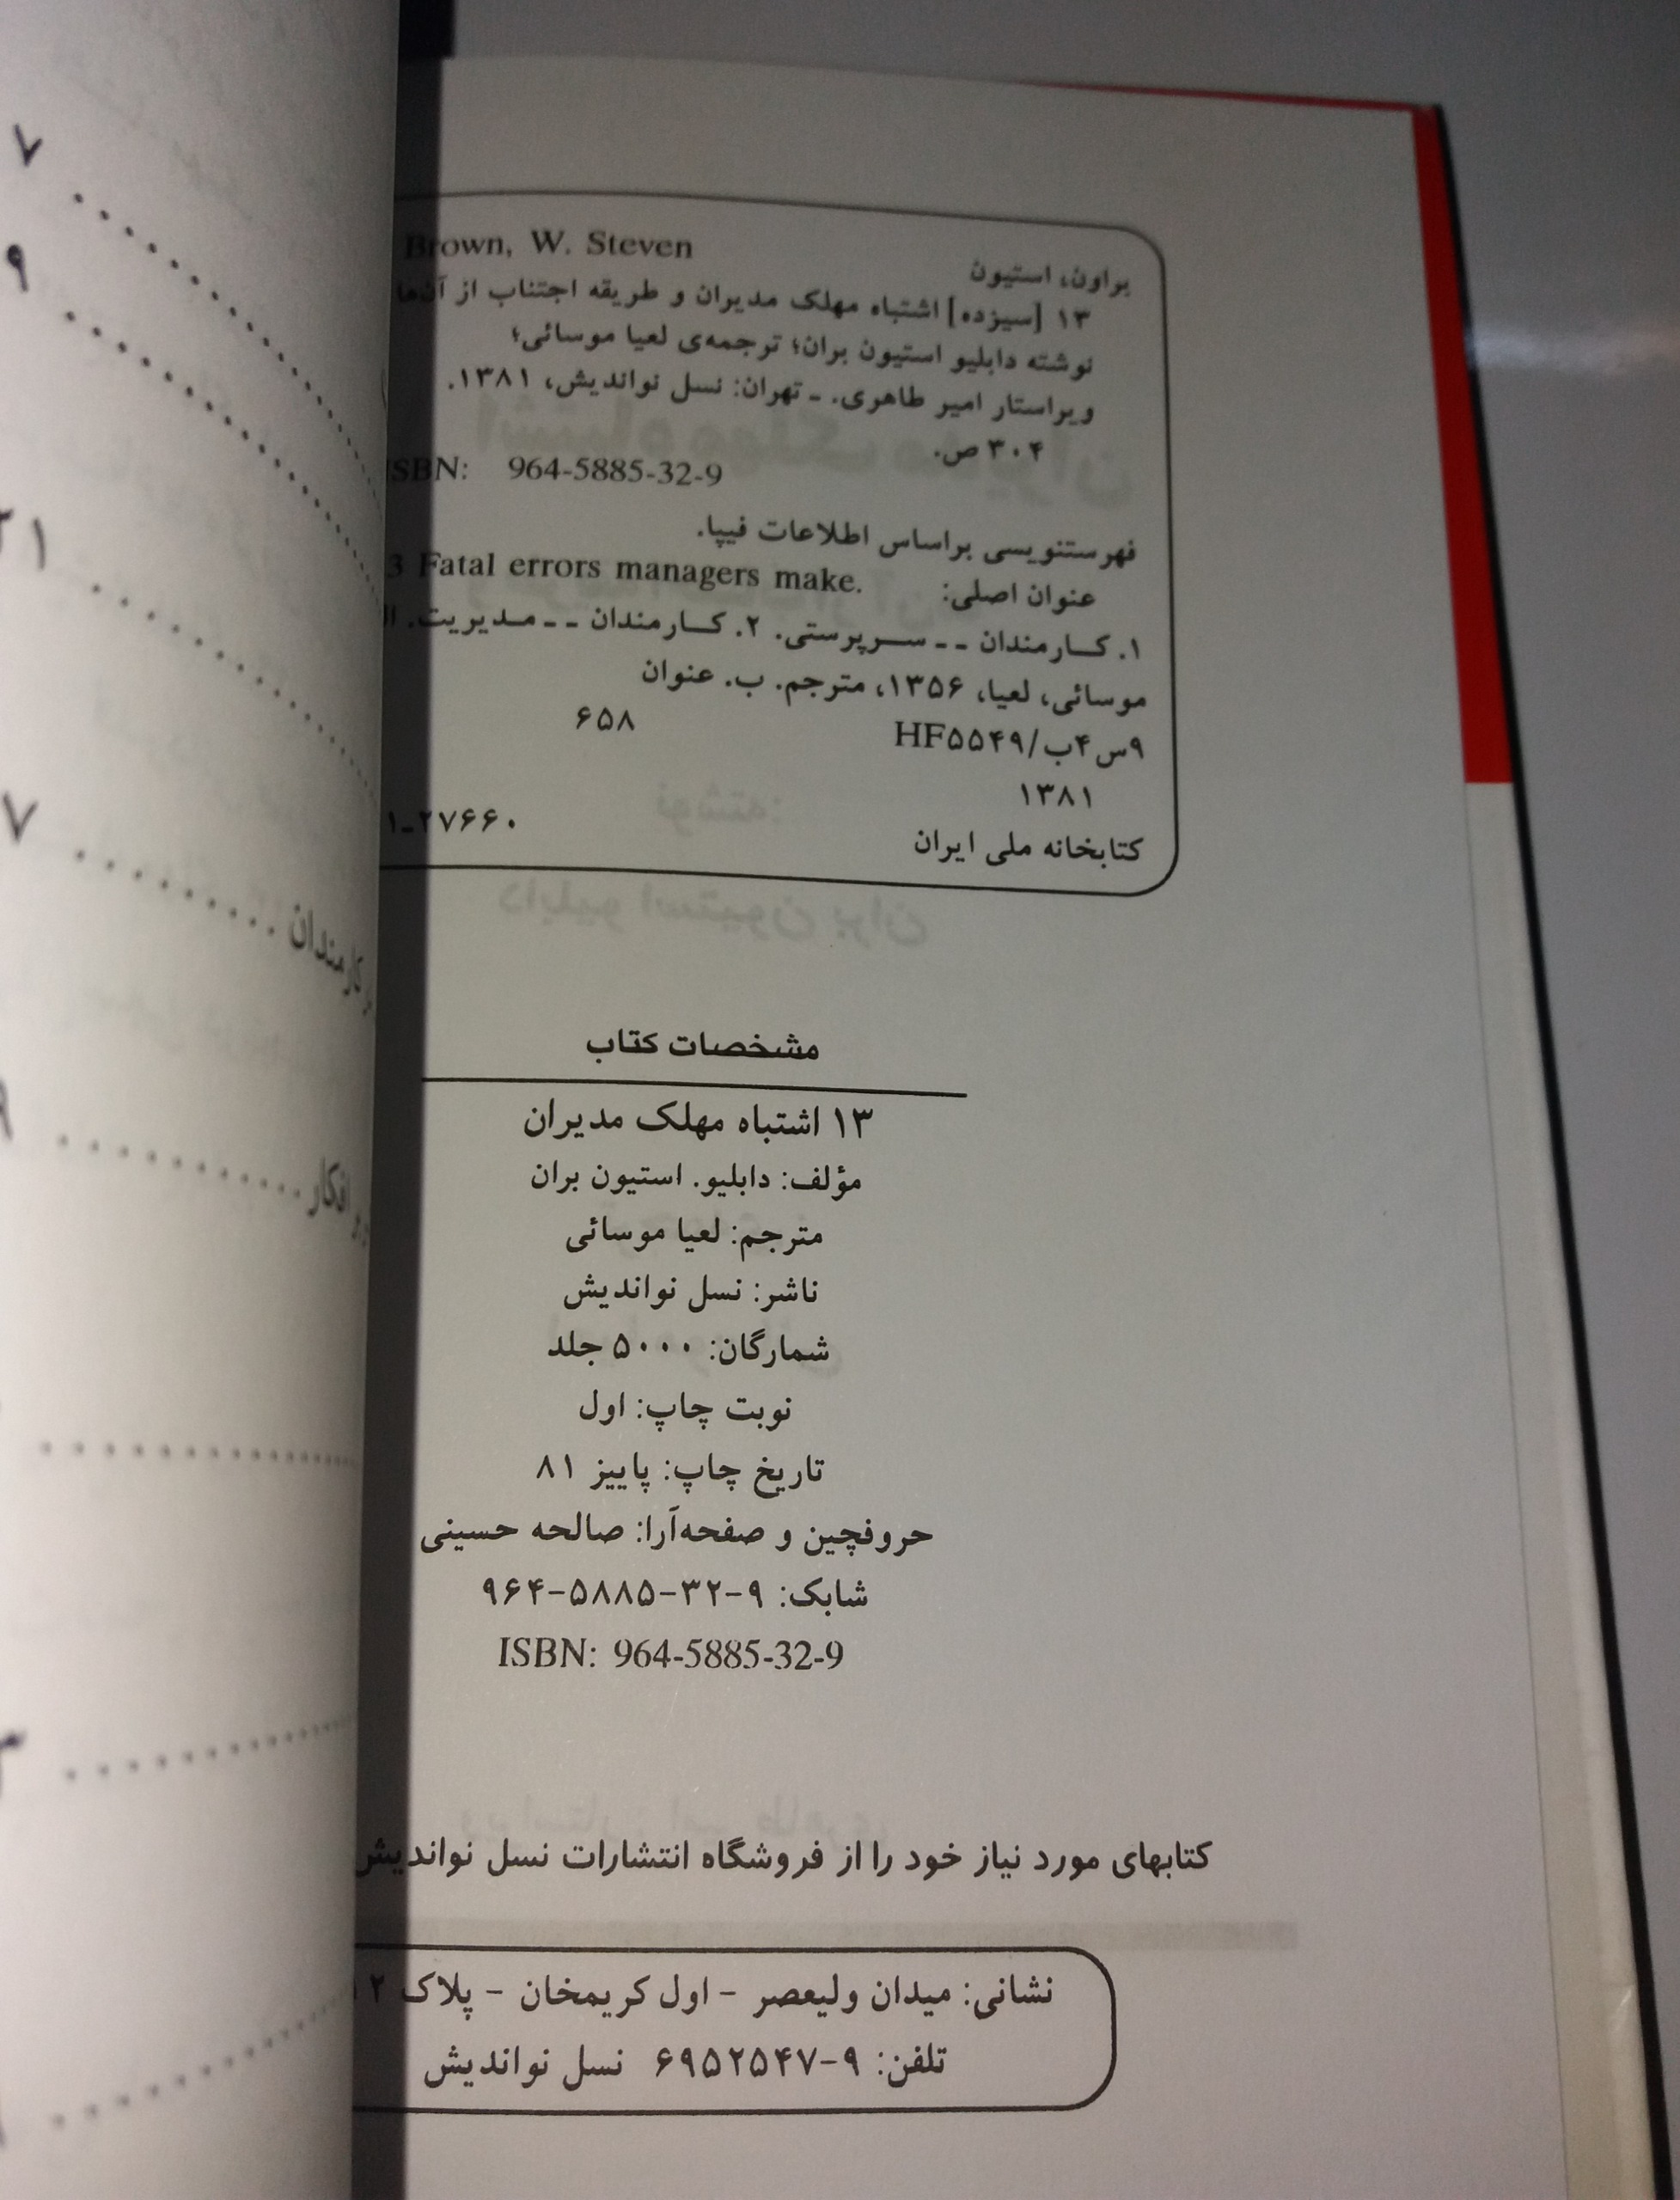 براون، استیون Brown, W. Steven
۱۳ [سیزده] اشتباه مهلک مدیران و طریقه اجتناب از آن‌ها
نوشته دابلیو استیون بران؛ ترجمه‌ی لعیا موسائی؛
ویراستار امیر طاهری. ـ تهران: نسل نواندیش، ۱۳۸۱.
۳۰۴ ص.
ISBN: 964-5885-32-9
فهرستنویسی براساس اطلاعات فیپا.
عنوان اصلی: 3 Fatal errors managers make.
۱. کارمندان ـ ـ سرپرستی. ۲. کارمندان ـ ـ مدیریت.
موسائی، لعیا، ۱۳۵۶، مترجم. ب. عنوان
۹س۴ب/HF۵۵۴۹ ۶۵۸
۱۳۸۱
کتابخانه ملی ایران ۱-۲۷۶۶۰
مشخصات کتاب
۱۳ اشتباه مهلک مدیران
مؤلف: دابلیو. استیون بران
مترجم: لعیا موسائی
ناشر: نسل نواندیش
شمارگان: ۵۰۰۰ جلد
نوبت چاپ: اول
تاریخ چاپ: پاییز ۸۱
حروفچین و صفحه‌آرا: صالحه حسینی
شابک: ۹-۳۲-۵۸۸۵-۹۶۴
ISBN: 964-5885-32-9
کتابهای مورد نیاز خود را از فروشگاه انتشارات نسل نواندیش
نشانی: میدان ولیعصر - اول کریمخان - پلاک
تلفن: ۹-۶۹۵۲۵۴۷ نسل نواندیش
۷
۹
۲۱
۷
کارمندان
افکار